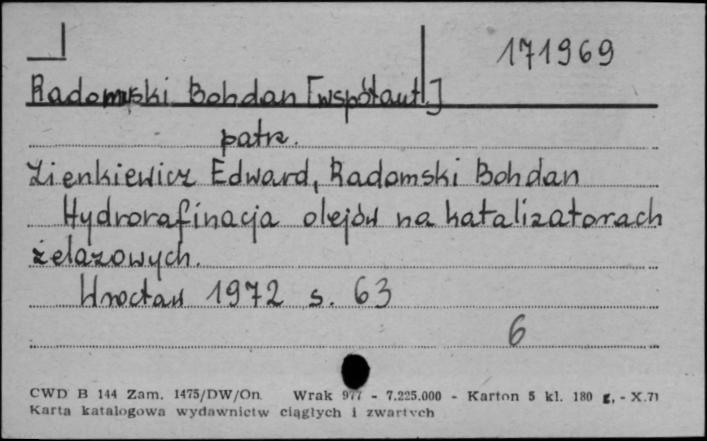 171969
Radomski Bohdan [współaut.]
patrz.
Zienkiewicz Edward, Radomski Bohdan
Hydrorafinacja olejów na katalizatorach
żelazowych.
Wrocław 1972 s. 63
6
CWD B 144 Zam. 1475/DW/On. Wrak 977 - 7.225.000 - Karton 5 kl. 180 g. - X.71
Karta katalogowa wydawnictw ciągłych i zwartych